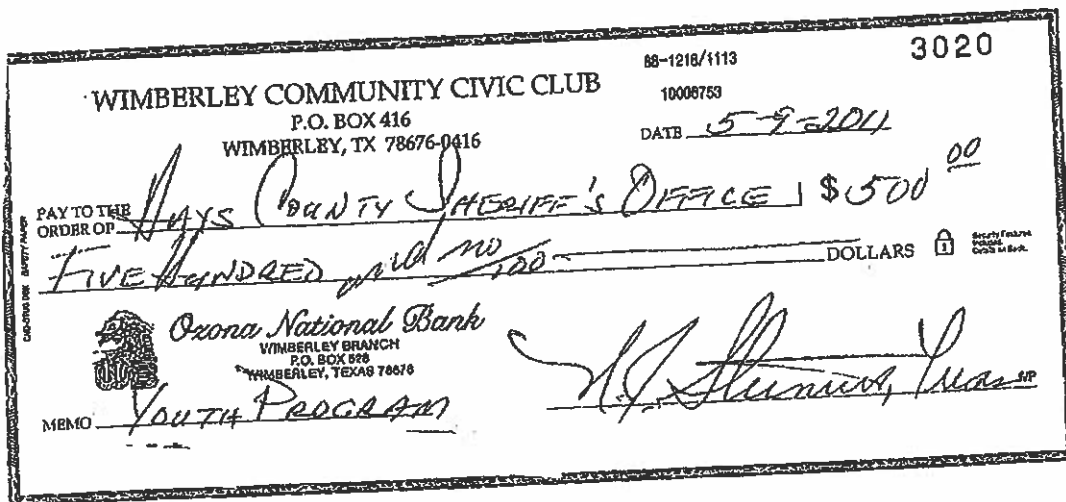 3020
88-1218/1113
WIMBERLEY COMMUNITY CIVIC CLUB
10008753
P.O. BOX 416
WIMBERLEY, TX 78676-0416
DATE 5-9-2011
PAY TO THE ORDER OF HAYS COUNTY SHERIFF'S OFFICE $ 500 00
FIVE HUNDRED and no/100 DOLLARS
Security Features Included. Details on Back.
Ozona National Bank
WIMBERLEY BRANCH
P.O. BOX 528
WIMBERLEY, TEXAS 78676
MEMO YOUTH PROGRAM
Treas MP
SAFETY PAPER